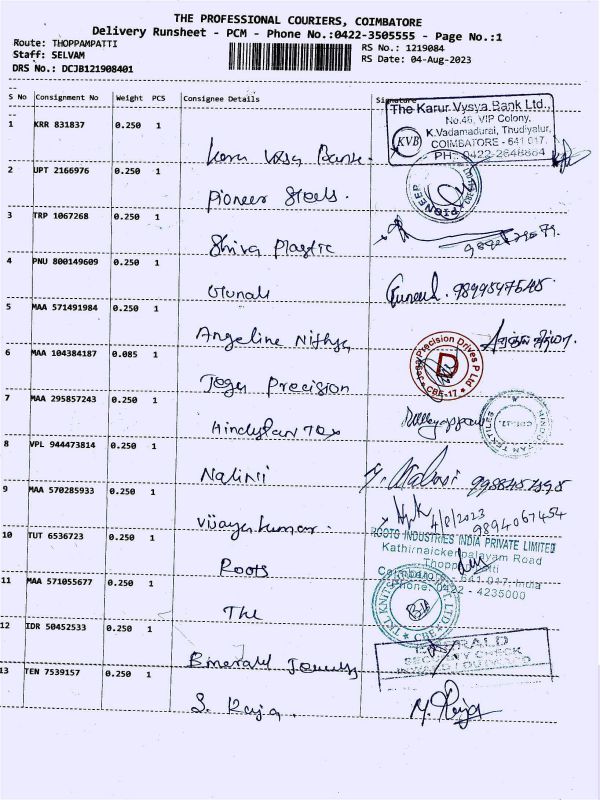 THE PROFESSIONAL COURIERS, COIMBATORE
Delivery Runsheet - PCM - Phone No.:0422-3505555 - Page No.:1
Route: THOPPAMPATTI
RS No.: 1219084
Staff: SELVAM
RS Date: 04-Aug-2023
DRS No.: DCJB121908401
S No Consignment No Weight PCS Consignee Details Signature
The Karur Vysya Bank Ltd.,
No.46, VIP Colony,
K.Vadamadurai, Thudiyalur,
COIMBATORE - 641 017.
PH: 0422-2648864
KVB
1 KRR 831837 0.250 1
Karur Vysya Bank.
2 UPT 2166976 0.250 1
Pioneer Steels.
PIONEER
3 TRP 1067268 0.250 1
Shiva Plastic
4 PNU 800149609 0.250 1
Gunal
5 MAA 571491984 0.250 1
Angeline Nithya
6 MAA 104384187 0.085 1
Precision
Precision Drives P Ltd
D
CBE-17
7 MAA 295857243 0.250 1
Hindustan Tex
TEXTILES
8 VPL 944473814 0.250 1
Nalini
9 MAA 570285933 0.250 1
Vijayakumar.
4/8/2023
9894067454
10 TUT 6536723 0.250 1
Roots
ROOTS INDUSTRIES INDIA PRIVATE LIMITED
Kathirnaickenpalayam Road
Thoppampatti
Coimbatore - 641 017. India
Phone: 0422 - 4235000
11 MAA 571055677 0.250 1
The
TKL KNITS LTD
CBE
12 IDR 50452533 0.250 1
Emerald Jewelly
EMERALD
SECURITY CHECK
13 TEN 7539157 0.250 1
S. Raja.